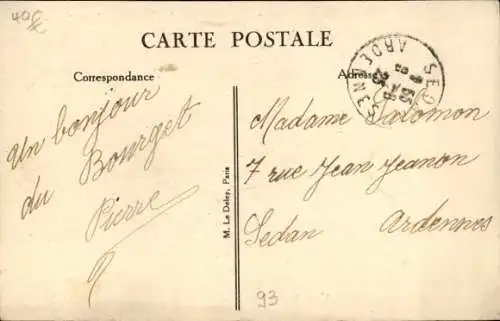 CARTE POSTALE
Correspondance
Adresse
Un bonjour
du Bourget
Pierre
M. Le Deley, Paris
SEDAN
ARDENNES
Madame Salomon
7 rue Jean Jeanon
Sedan Ardennes
93